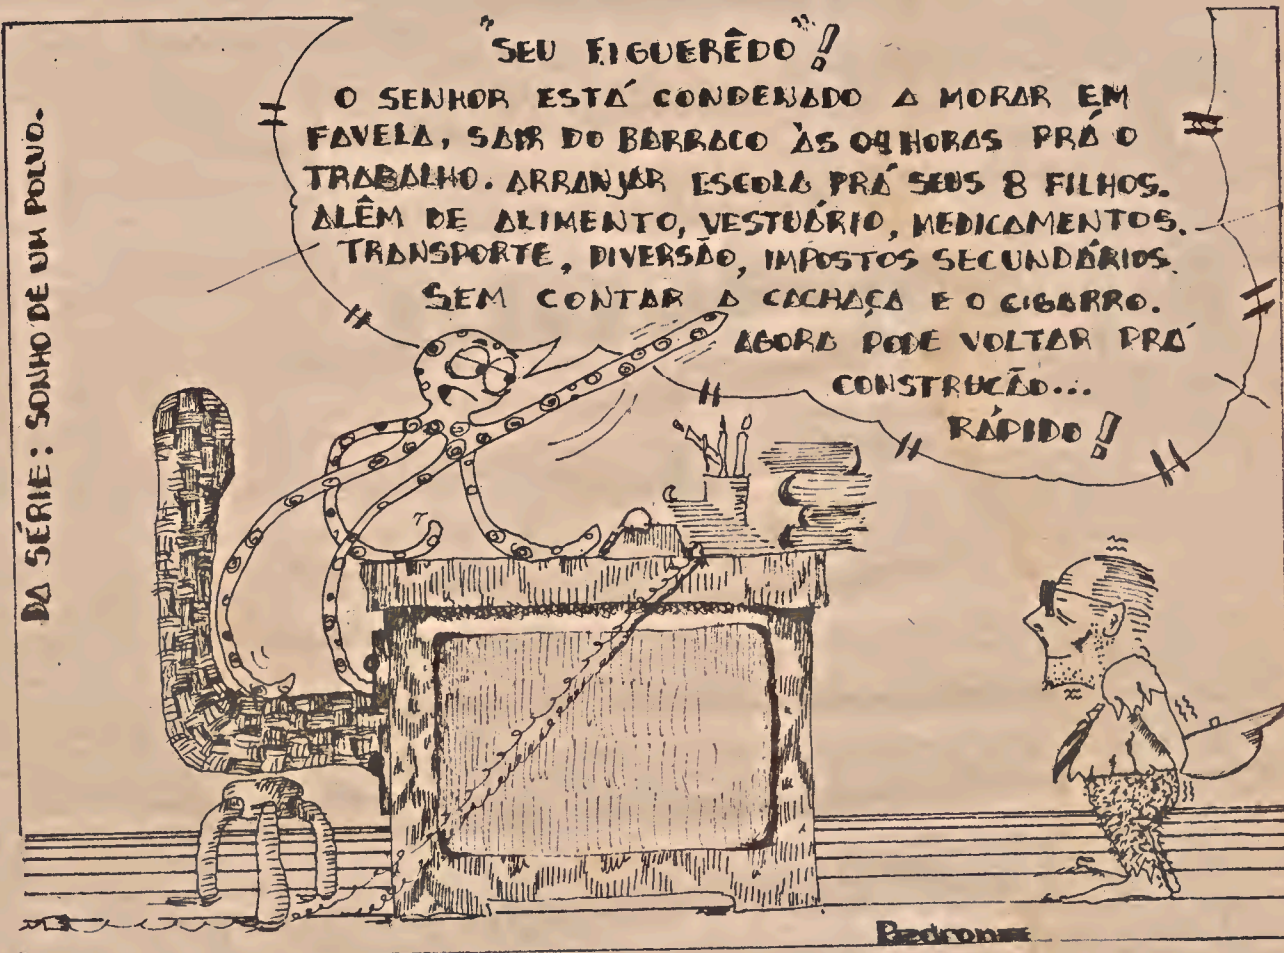 DA SÉRIE: SONHO DE UM POLVO.
"SEU FIGUERÊDO"!
O SENHOR ESTÁ CONDENADO A MORAR EM
FAVELA, SAIR DO BARRACO ÀS 04 HORAS PRÁ O
TRABALHO. ARRANJAR ESCOLA PRÁ SEUS 8 FILHOS.
ALÊM DE ALIMENTO, VESTUÁRIO, MEDICAMENTOS.
TRANSPORTE, DIVERSÃO, IMPOSTOS SECUNDÁRIOS.
SEM CONTAR A CACHAÇA E O CIGARRO.
AGORA PODE VOLTAR PRÁ
CONSTRUÇÃO...
RÁPIDO!